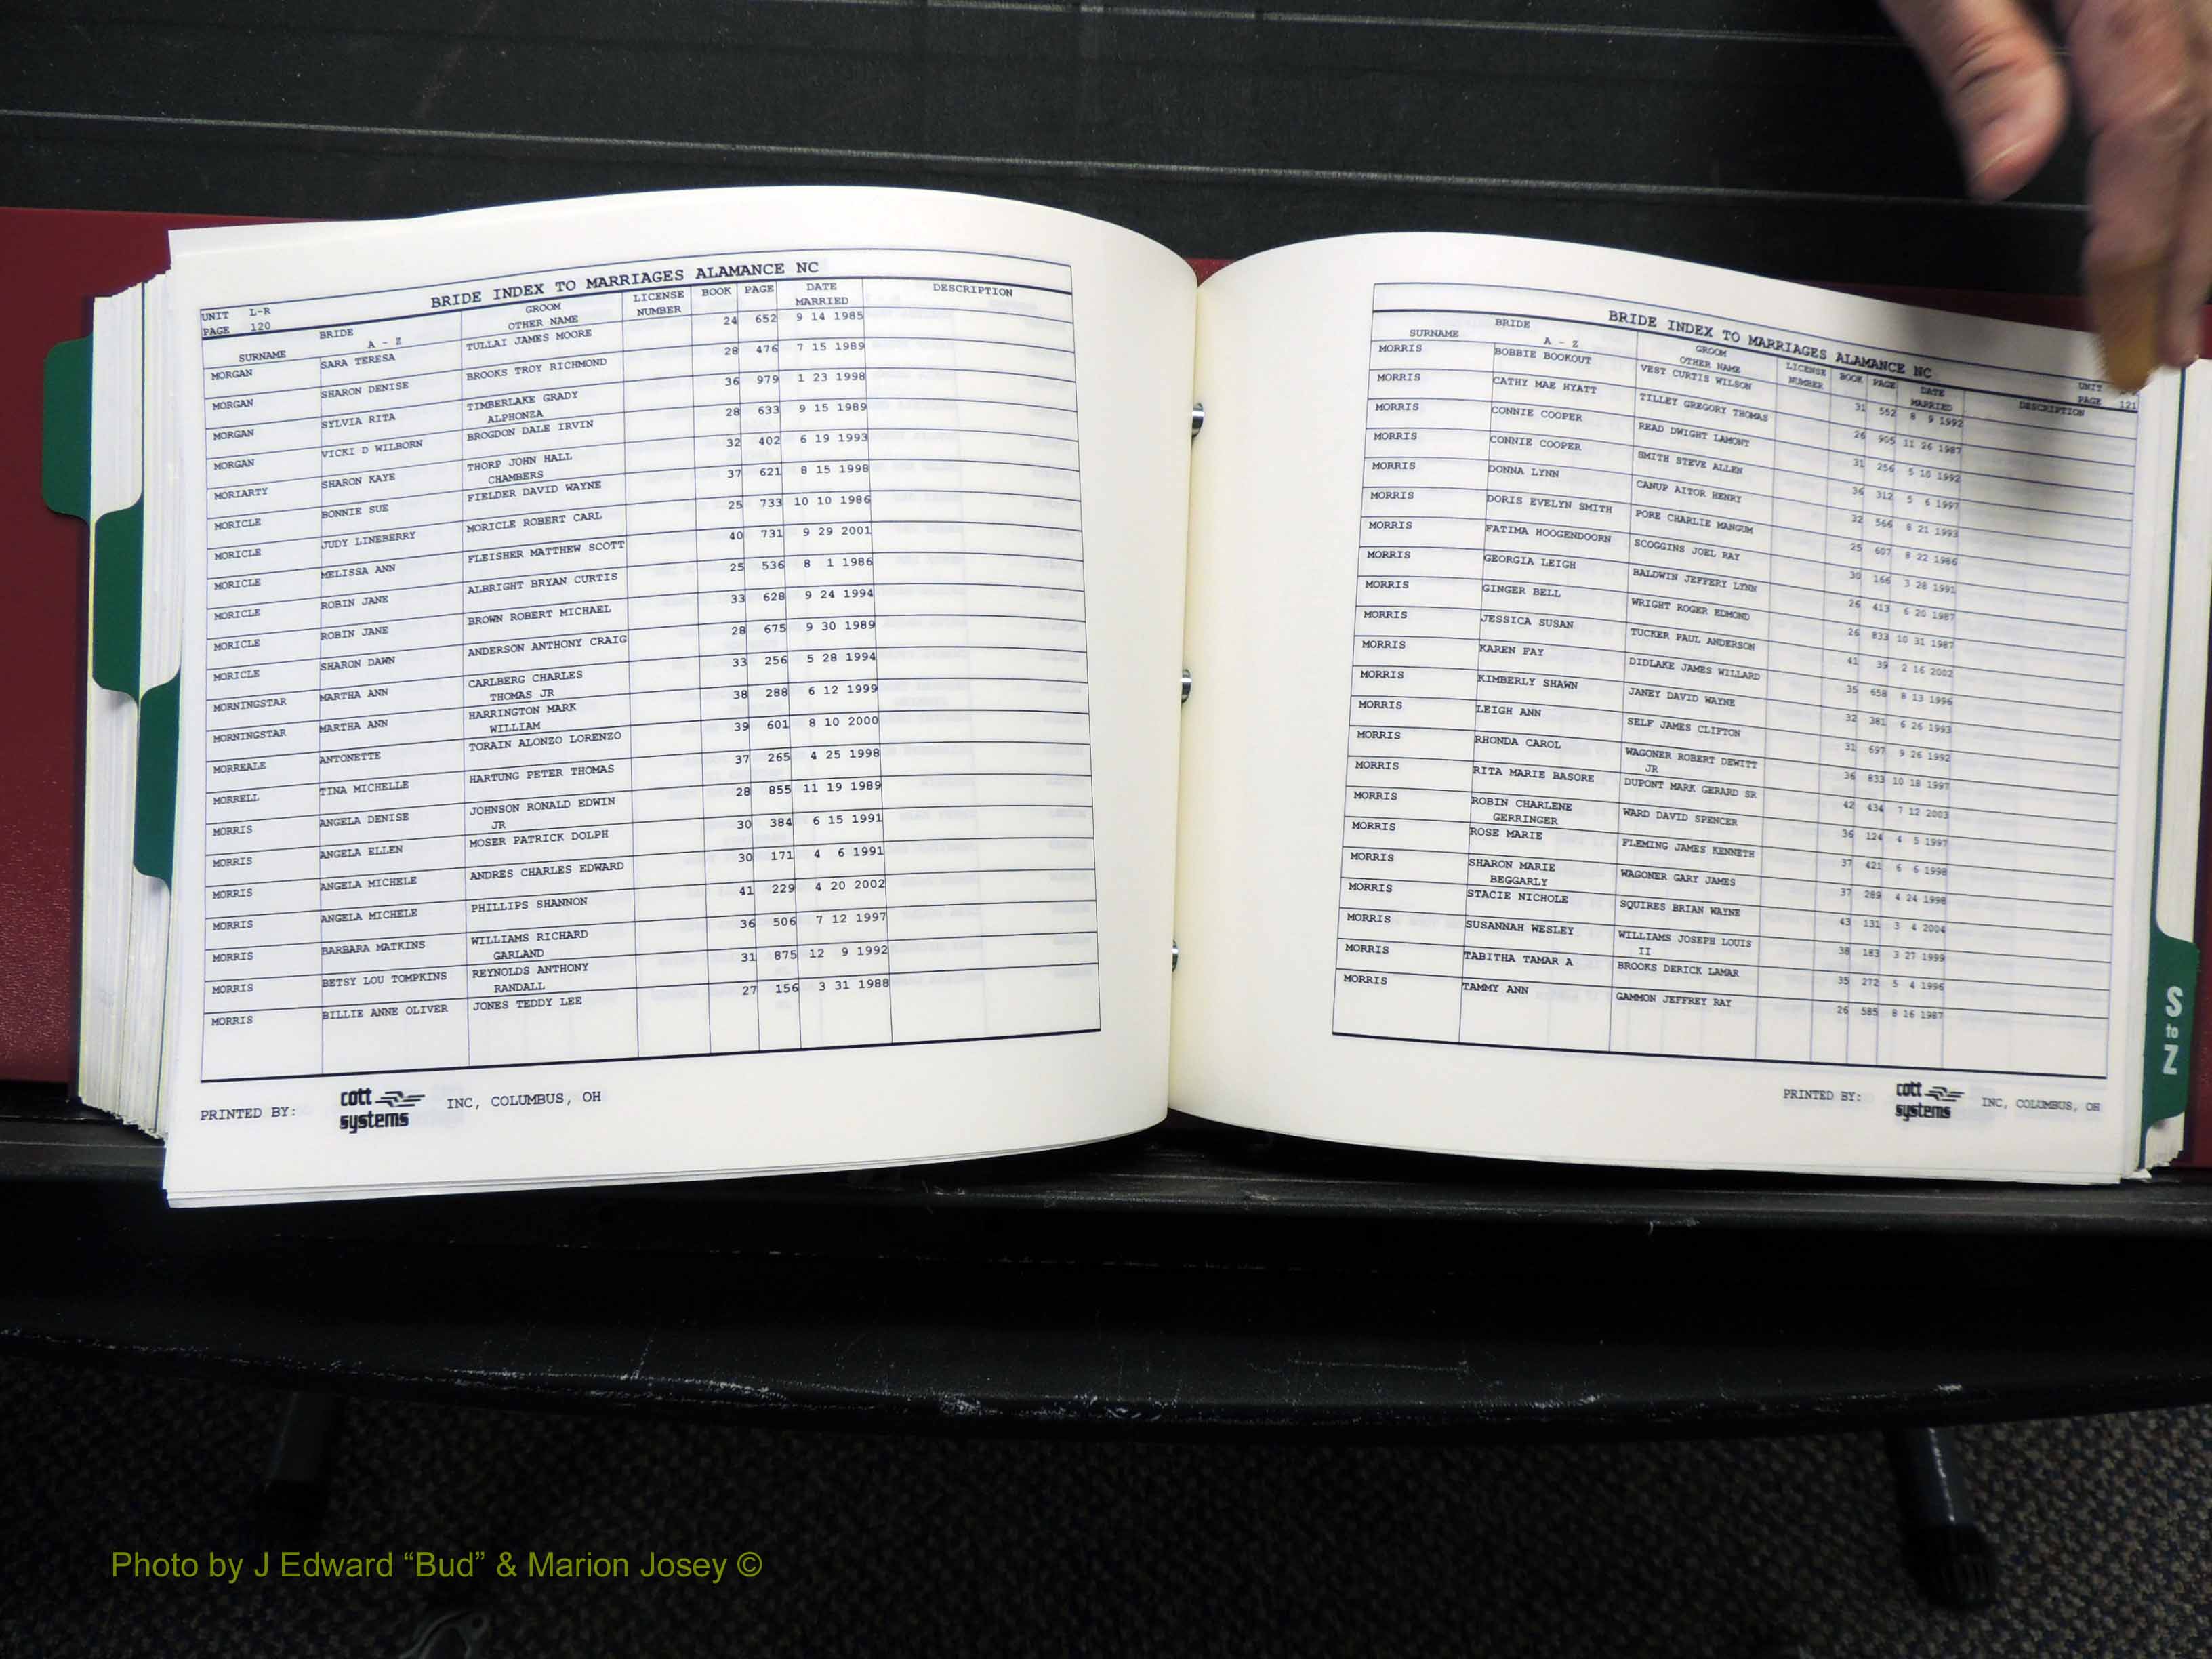 BRIDE INDEX TO MARRIAGES ALAMANCE NC
UNIT L-R
PAGE 120
SURNAME BRIDE A - Z GROOM OTHER NAME LICENSE NUMBER BOOK PAGE DATE MARRIED DESCRIPTION
MORGAN SARA TERESA TULLAI JAMES MOORE 24 652 9 14 1985
MORGAN SHARON DENISE BROOKS TROY RICHMOND 28 476 7 15 1989
MORGAN SYLVIA RITA TIMBERLAKE GRADY ALPHONZA 36 979 1 23 1998
MORGAN VICKI D WILBORN BROGDON DALE IRVIN 28 633 9 15 1989
MORIARTY SHARON KAYE THORP JOHN HALL CHAMBERS 32 402 6 19 1993
MORICLE BONNIE SUE FIELDER DAVID WAYNE 37 621 8 15 1998
MORICLE JUDY LINEBERRY MORICLE ROBERT CARL 25 733 10 10 1986
MORICLE MELISSA ANN FLEISHER MATTHEW SCOTT 40 731 9 29 2001
MORICLE ROBIN JANE ALBRIGHT BRYAN CURTIS 25 536 8 1 1986
MORICLE ROBIN JANE BROWN ROBERT MICHAEL 33 628 9 24 1994
MORICLE SHARON DAWN ANDERSON ANTHONY CRAIG 28 675 9 30 1989
MORNINGSTAR MARTHA ANN CARLBERG CHARLES THOMAS JR 33 256 5 28 1994
MORNINGSTAR MARTHA ANN HARRINGTON MARK WILLIAM 38 288 6 12 1999
MORREALE ANTONETTE TORAIN ALONZO LORENZO 39 601 8 10 2000
MORRELL TINA MICHELLE HARTUNG PETER THOMAS 37 265 4 25 1998
MORRIS ANGELA DENISE JOHNSON RONALD EDWIN JR 28 855 11 19 1989
MORRIS ANGELA ELLEN MOSER PATRICK DOLPH 30 384 6 15 1991
MORRIS ANGELA MICHELE ANDRES CHARLES EDWARD 30 171 4 6 1991
MORRIS ANGELA MICHELE PHILLIPS SHANNON 41 229 4 20 2002
MORRIS BARBARA MATKINS WILLIAMS RICHARD GARLAND 36 506 7 12 1997
MORRIS BETSY LOU TOMPKINS REYNOLDS ANTHONY RANDALL 31 875 12 9 1992
MORRIS BILLIE ANNE OLIVER JONES TEDDY LEE 27 156 3 31 1988
PRINTED BY: cott systems INC, COLUMBUS, OH
BRIDE INDEX TO MARRIAGES ALAMANCE NC
UNIT
PAGE 121
SURNAME BRIDE A - Z GROOM OTHER NAME LICENSE NUMBER BOOK PAGE DATE MARRIED DESCRIPTION
MORRIS BOBBIE BOOKOUT VEST CURTIS WILSON 31 552 8 9 1992
MORRIS CATHY MAE HYATT TILLEY GREGORY THOMAS 26 905 11 26 1987
MORRIS CONNIE COOPER READ DWIGHT LAMONT 31 256 5 10 1992
MORRIS CONNIE COOPER SMITH STEVE ALLEN 36 312 5 6 1997
MORRIS DONNA LYNN CANUP AITOR HENRY 32 566 8 21 1993
MORRIS DORIS EVELYN SMITH PORE CHARLIE MANGUM 25 607 8 22 1986
MORRIS FATIMA HOOGENDOORN SCOGGINS JOEL RAY 30 166 3 28 1991
MORRIS GEORGIA LEIGH BALDWIN JEFFERY LYNN 26 413 6 20 1987
MORRIS GINGER BELL WRIGHT ROGER EDMOND 26 833 10 31 1987
MORRIS JESSICA SUSAN TUCKER PAUL ANDERSON 41 39 2 16 2002
MORRIS KAREN FAY DIDLAKE JAMES WILLARD 35 658 8 13 1996
MORRIS KIMBERLY SHAWN JANEY DAVID WAYNE 32 381 6 26 1993
MORRIS LEIGH ANN SELF JAMES CLIFTON 31 697 9 26 1992
MORRIS RHONDA CAROL WAGONER ROBERT DEWITT JR 36 833 10 18 1997
MORRIS RITA MARIE BASORE DUPONT MARK GERARD SR 42 434 7 12 2003
MORRIS ROBIN CHARLENE GERRINGER WARD DAVID SPENCER 36 124 4 5 1997
MORRIS ROSE MARIE FLEMING JAMES KENNETH 37 421 6 6 1998
MORRIS SHARON MARIE BEGGARLY WAGONER GARY JAMES 37 289 4 24 1998
MORRIS STACIE NICHOLE SQUIRES BRIAN WAYNE 43 131 3 4 2004
MORRIS SUSANNAH WESLEY WILLIAMS JOSEPH LOUIS II 38 183 3 27 1999
MORRIS TABITHA TAMAR A BROOKS DERICK LAMAR 35 272 5 4 1996
MORRIS TAMMY ANN GAMMON JEFFREY RAY 26 585 8 16 1987
PRINTED BY: cott systems INC, COLUMBUS, OH
S
to
Z
Photo by J Edward “Bud” & Marion Josey ©